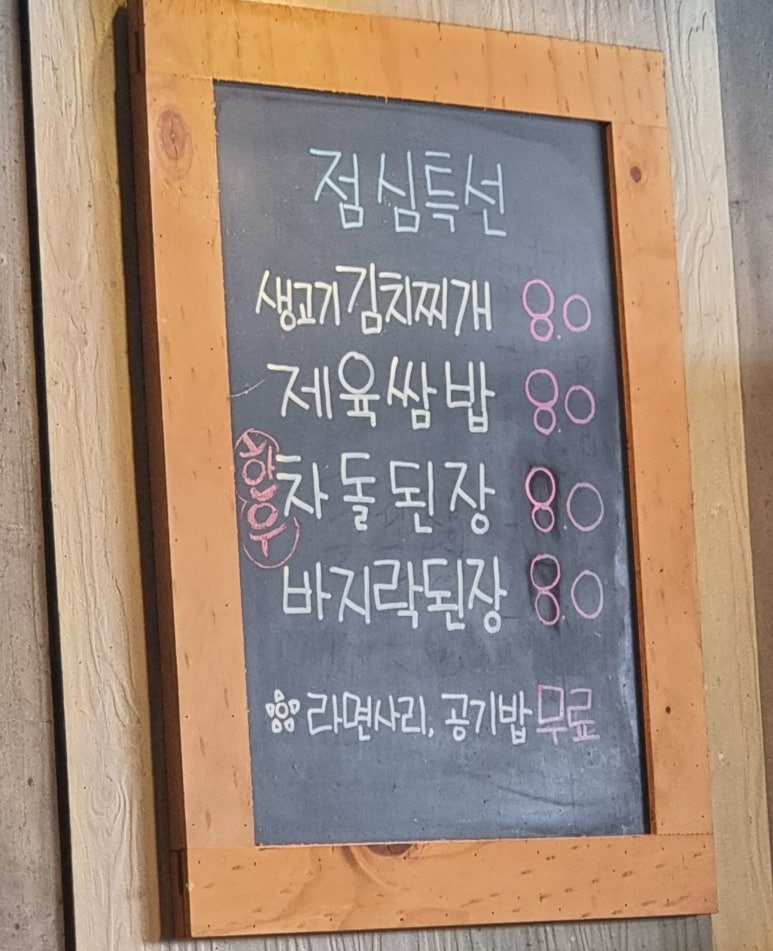 점심특선
생고기김치찌개 8.0
제육쌈밥 8.0
한우 차돌된장 8.0
바지락된장 8.0
라면사리, 공기밥 무료